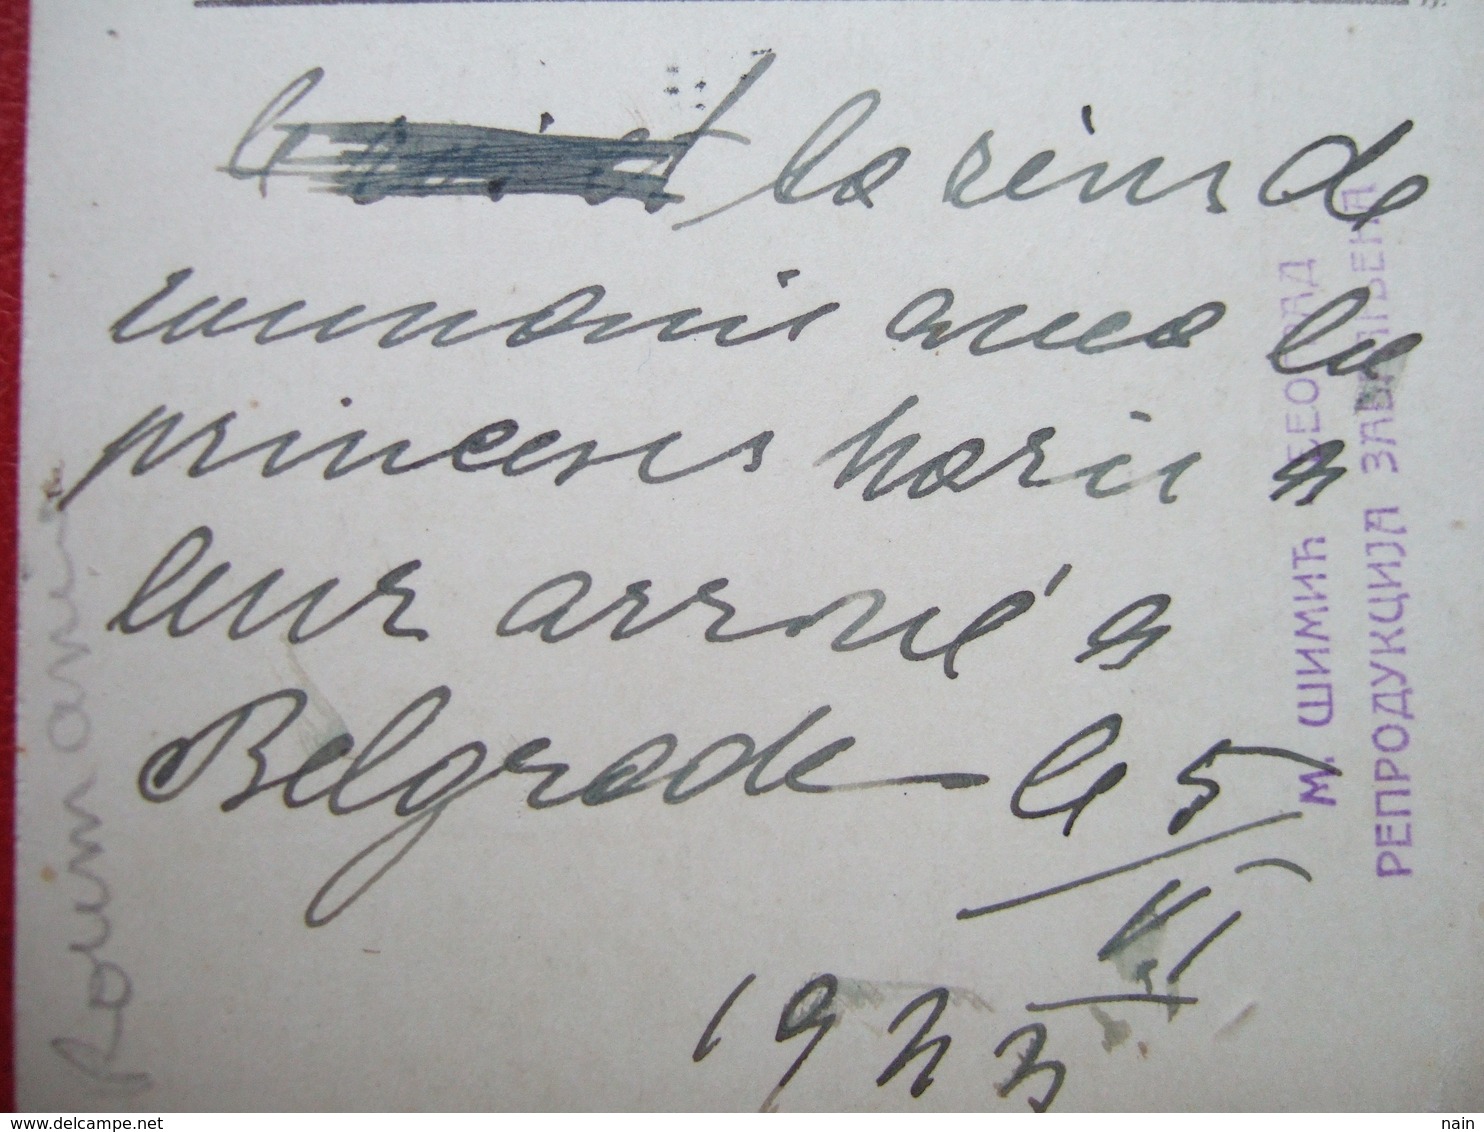 la reine de
roumanie avec la
princesse Marie a
leur arrivé a
Belgrade le 5
VI
1922
Roumanie
М. ШИМИЋ БЕОГРАД
РЕПРОДУКЦИЈА ЗАБРАЊЕНА
nain
delcampe.net